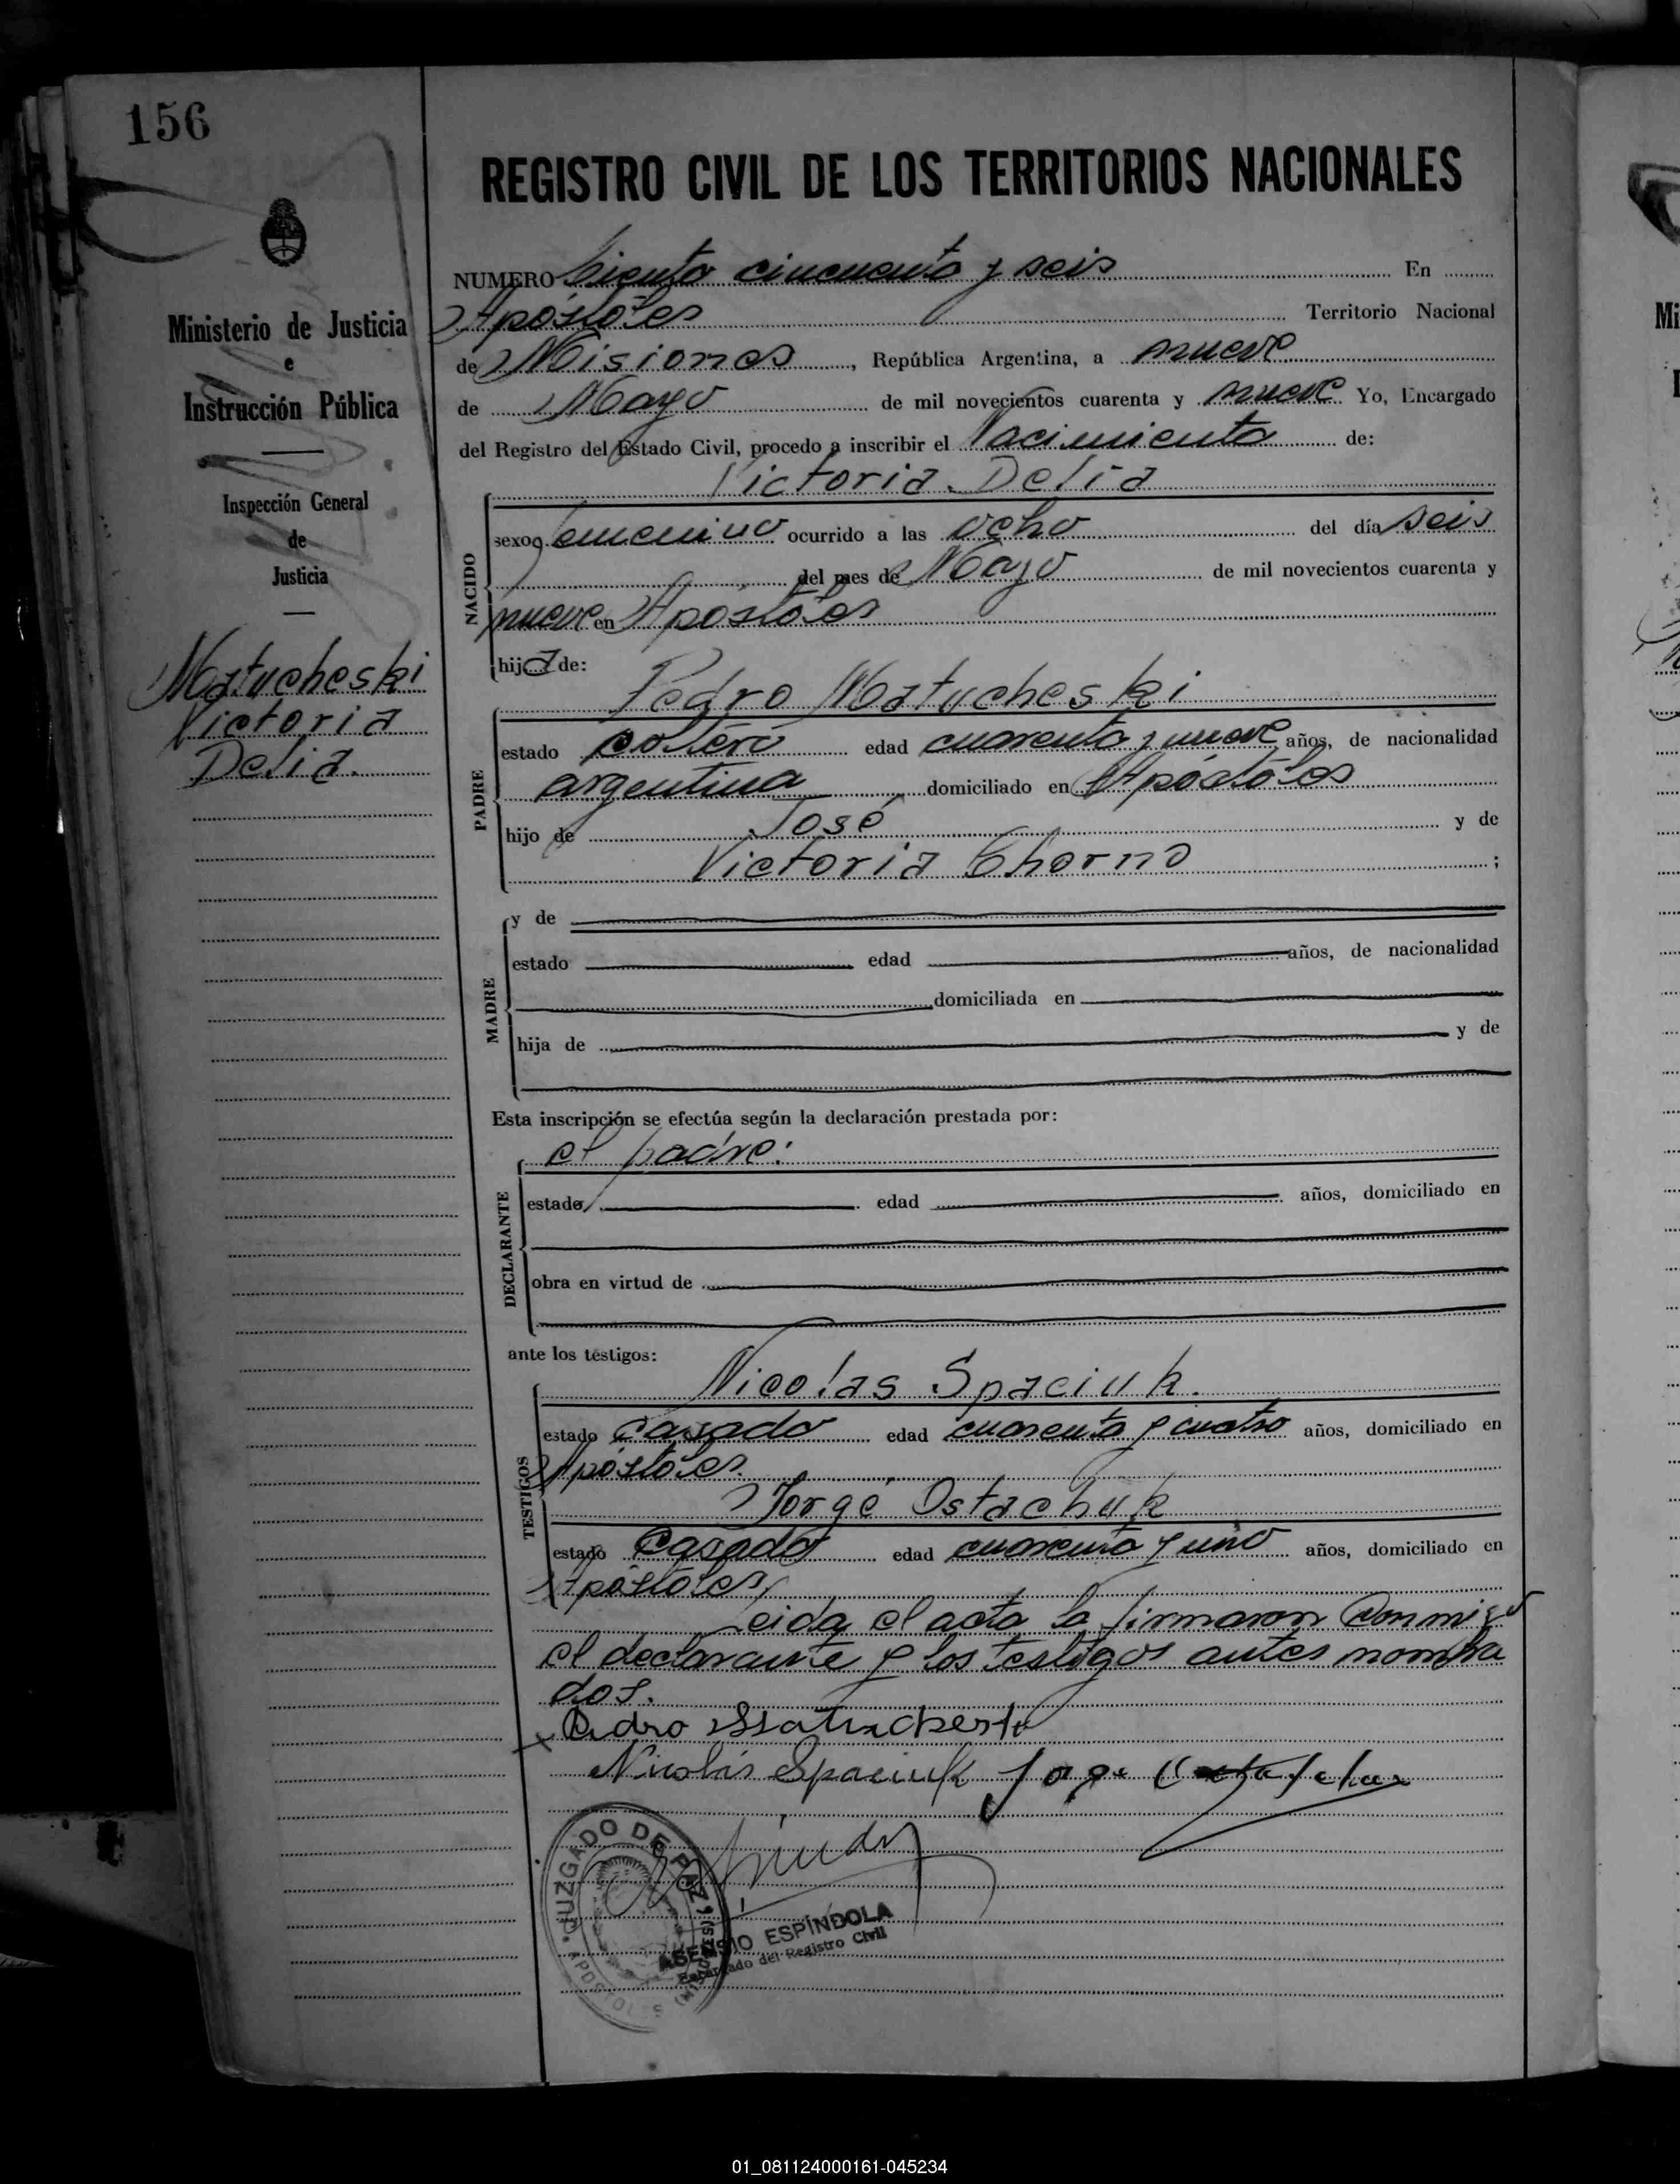 156
REGISTRO CIVIL DE LOS TERRITORIOS NACIONALES
Ministerio de Justicia
e
Instrucción Pública
Inspección General
de
Justicia
Matucheski
Victoria
Delia.
NUMERO Ciento cincuenta y seis En
Apóstoles Territorio Nacional
de Misiones, República Argentina, a nueve
de Mayo de mil novecientos cuarenta y nueve Yo, Encargado
del Registro del Estado Civil, procedo a inscribir el Nacimiento de:
Victoria Delia
NACIDO
sexo femenino ocurrido a las ocho del día seis
del mes de Mayo de mil novecientos cuarenta y
nueve en Apóstoles
hija de:
Pedro Matucheski
PADRE
estado soltero edad cuarenta y nueve años, de nacionalidad
argentina domiciliado en Apóstoles
hijo de José y de
Victoria Chorno ;
MADRE
y de
estado edad años, de nacionalidad
domiciliada en
hija de y de
Esta inscripción se efectúa según la declaración prestada por:
el padre:
DECLARANTE
estado edad años, domiciliado en
obra en virtud de
ante los testigos:
Nicolas Spaciuk.
TESTIGOS
estado casado edad cuarenta y cuatro años, domiciliado en
Apóstoles.
Jorge Ostachuk
estado Casado edad cuarenta y uno años, domiciliado en
Apóstoles,
Leida el acta la firmaron conmigo
el declarante y los testigos antes nombra
dos.
Pedro Matucheski
Nicolás Spaciuk Jorge
JUZGADO DE PAZ
APOSTOLES (MISIONES)
ASENSIO ESPÍNDOLA
Encargado del Registro Civil
Mi
01_081124000161-045234